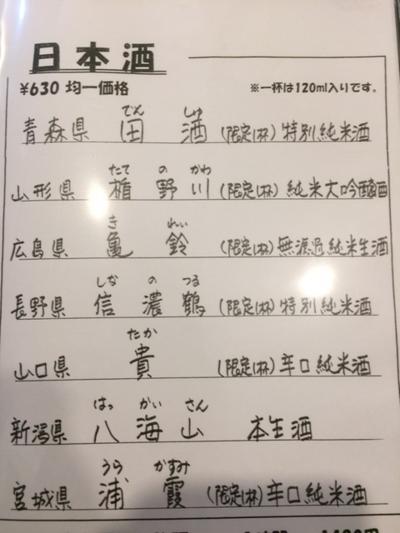 日本酒
¥630 均一価格 ※一杯は120ml入りです。
でん しゅ
青森県 田酒 (限定1杯) 特別純米酒
たて の かわ
山形県 楯野川 (限定1杯) 純米大吟醸酒
き れい
広島県 亀鈴 (限定1杯) 無濾過純米生酒
しな の つる
長野県 信濃鶴 (限定1杯) 特別純米酒
たか
山口県 貴 (限定1杯) 辛口純米酒
はっ かい さん
新潟県 八海山 本生酒
うら かすみ
宮城県 浦霞 (限定1杯) 辛口純米酒